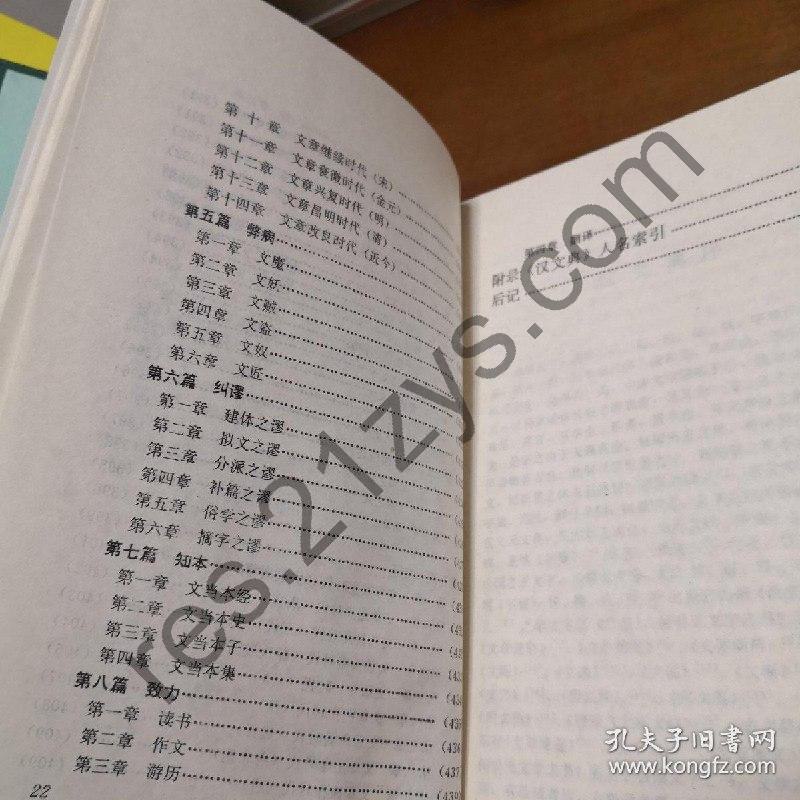 第十章 文章继续时代（宋）
第十一章 文章衰微时代（金元）
第十二章 文章兴复时代（明）
第十三章 文章昌明时代（清）
第十四章 文章改良时代（近今）
第五篇 弊病
第一章 文魔
第二章 文妖
第三章 文贼
第四章 文盗
第五章 文奴
第六章 文匠
第六篇 纠谬
第一章 建体之谬
第二章 拟文之谬
第三章 分派之谬
第四章 补篇之谬
第五章 俗字之谬
第六章 摛字之谬
第七篇 知本
第一章 文当本经
第二章 文当本史
第三章 文当本子
第四章 文当本集
第八篇 致力
第一章 读书
第二章 作文 (436
第三章 游历 (437
(439
22
第四章 翻译
附录《汉文典》人名索引
后记
res.21zys.com
孔夫子旧书网
www.kongfz.com